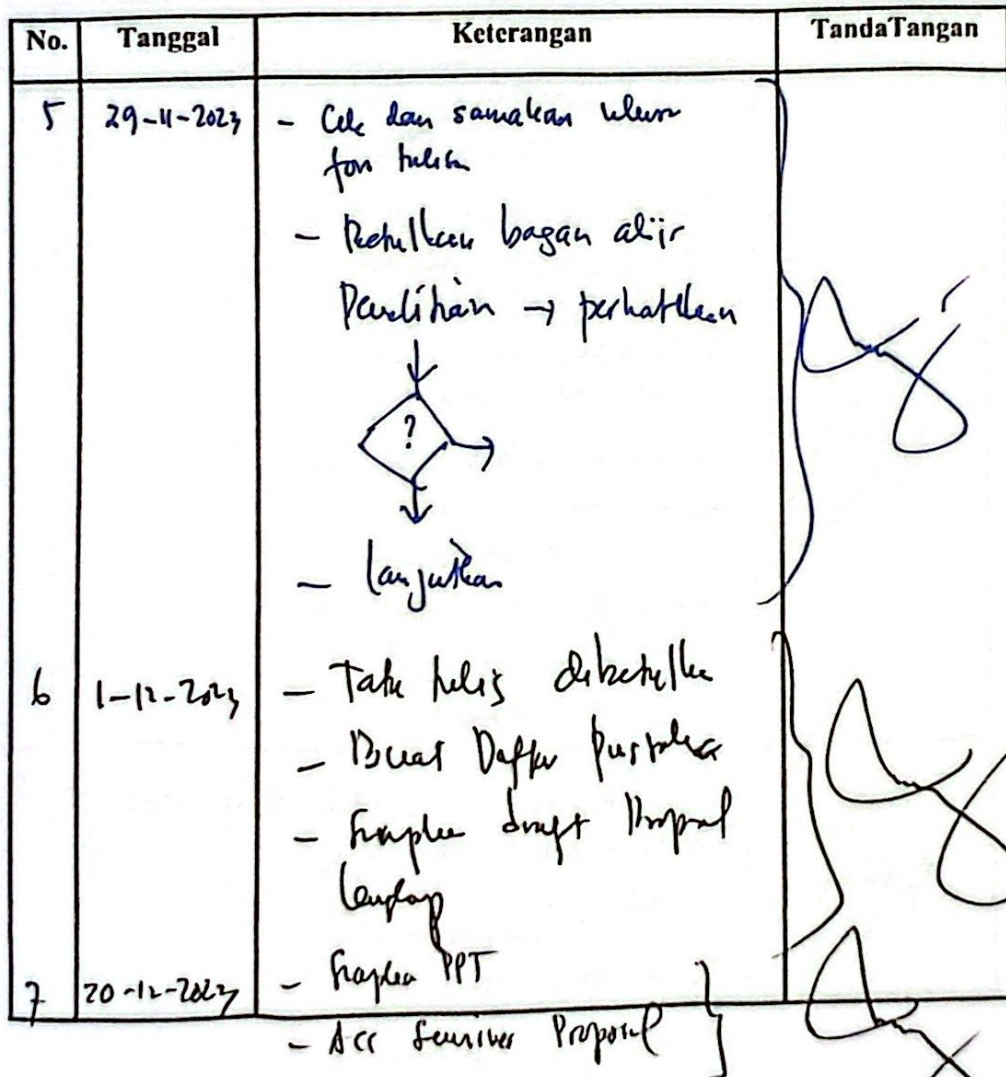 No. Tanggal Keterangan TandaTangan
5 29-11-2023 - Cek dan samakan ukuran
font tulisan
- Betulkan bagan alir
Penelitian → perhatikan
?
- lanjutkan
6 1-12-2023 - Tata tulis dibetulkan
- Buat Daftar Pustaka
- Siapkan draft Proposal
lengkap
7 20-12-2023 - Siapkan PPT
- Acc Seminar Proposal